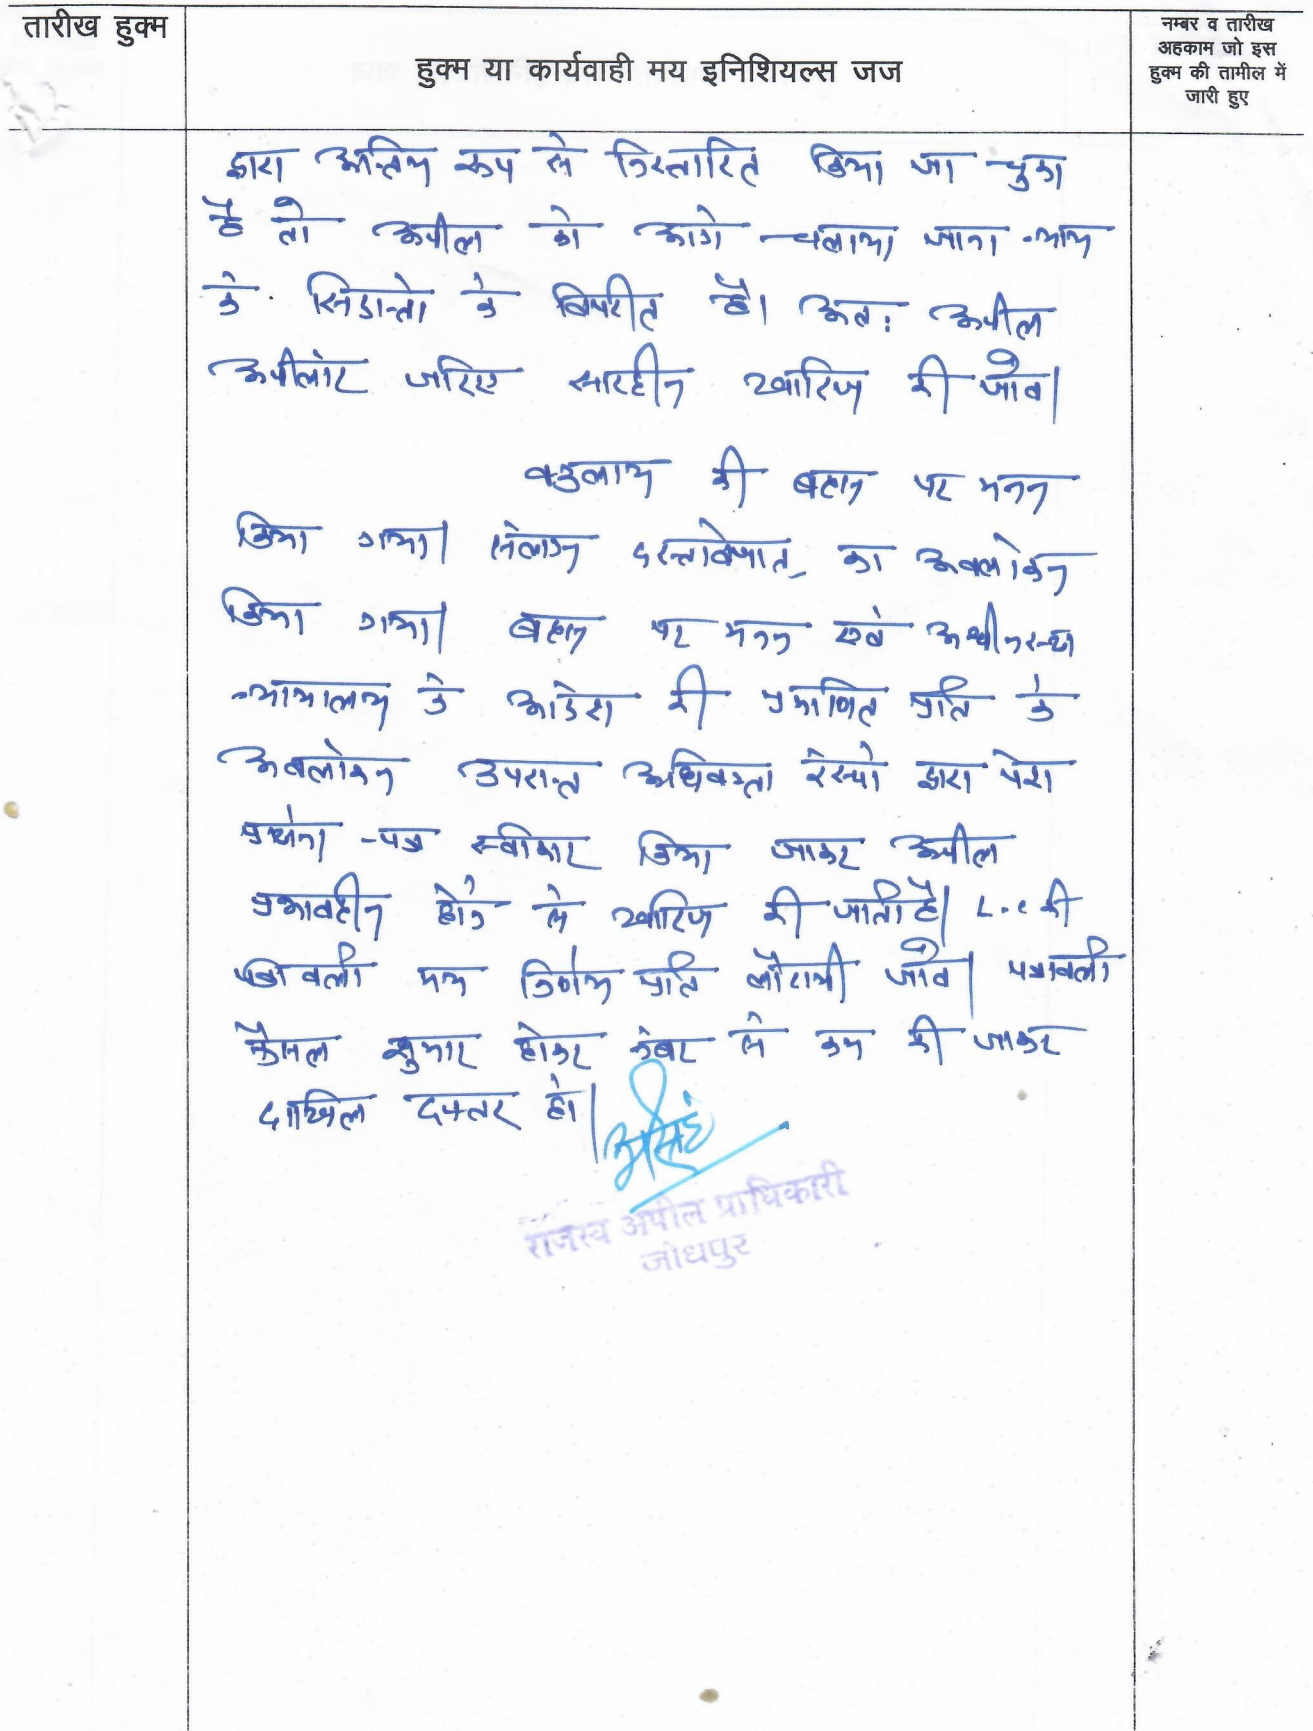 तारीख हुक्म
हुक्म या कार्यवाही मय इनिशियल्स जज
नम्बर व तारीख
अहकाम जो इस
हुक्म की तामील में
जारी हुए
द्वारा अन्तिम रूप से निस्तारित किया जा चुका
है तो अपील को आगे चलाया जाना न्याय
के सिद्धान्तो के विपरीत है। अतः अपील
अपीलांट जरिए सारहीन खारिज की जावे।
वकुलाय की बहस पर मनन
किया गया। संलग्न दस्तावेजात का अवलोकन
किया गया। बहस पर मनन एवं अधीनस्थ
न्यायालय के आदेश की प्रमाणित प्रति के
अवलोकन उपरान्त अधिवक्ता रेस्पो द्वारा पेश
प्रार्थना-पत्र स्वीकार किया जाकर अपील
प्रभावहीन होने से खारिज की जाती है। L.C की
पत्रावली मय निर्णय प्रति लौटायी जावे। पत्रावली
फैसल शुमार होकर नंबर से कम की जाकर
दाखिल दफ्तर हो।
राजस्व अपील प्राधिकारी
जोधपुर